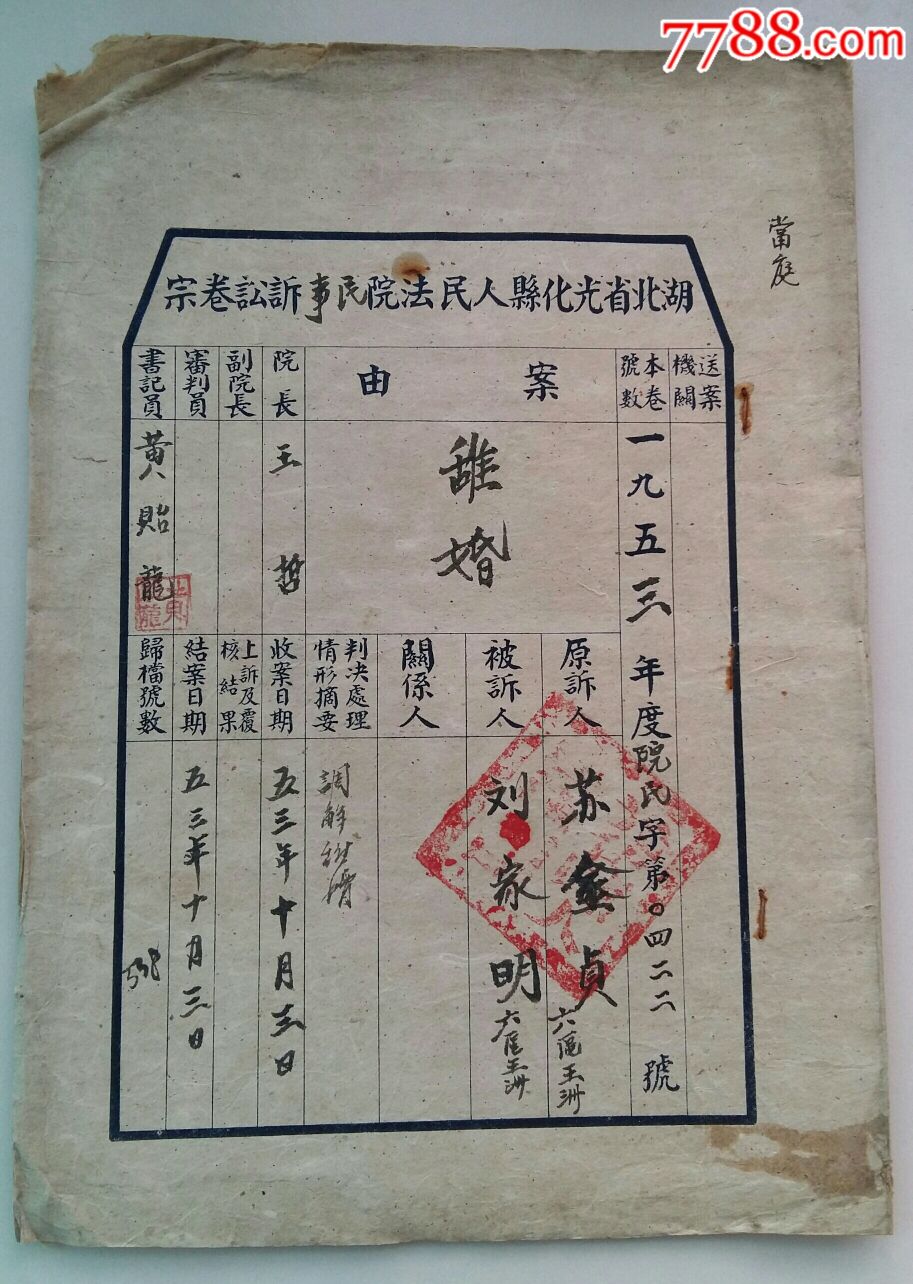 7788.com
當庭
湖北省光化縣人民法院民事訴訟卷宗
送案機關
本卷號數
一九五三年度院民字第〇四二二號
案由
離婚
院長
王哲
副院長
審判員
書記員
黄貽龍
原訴人
苏鑫貞
六區王洲
被訴人
刘家明
六區王洲
關係人
判决處理情形摘要
調解
收案日期
五三年十月三日
上訴及覆核結果
結案日期
五三年十月三日
歸檔號數